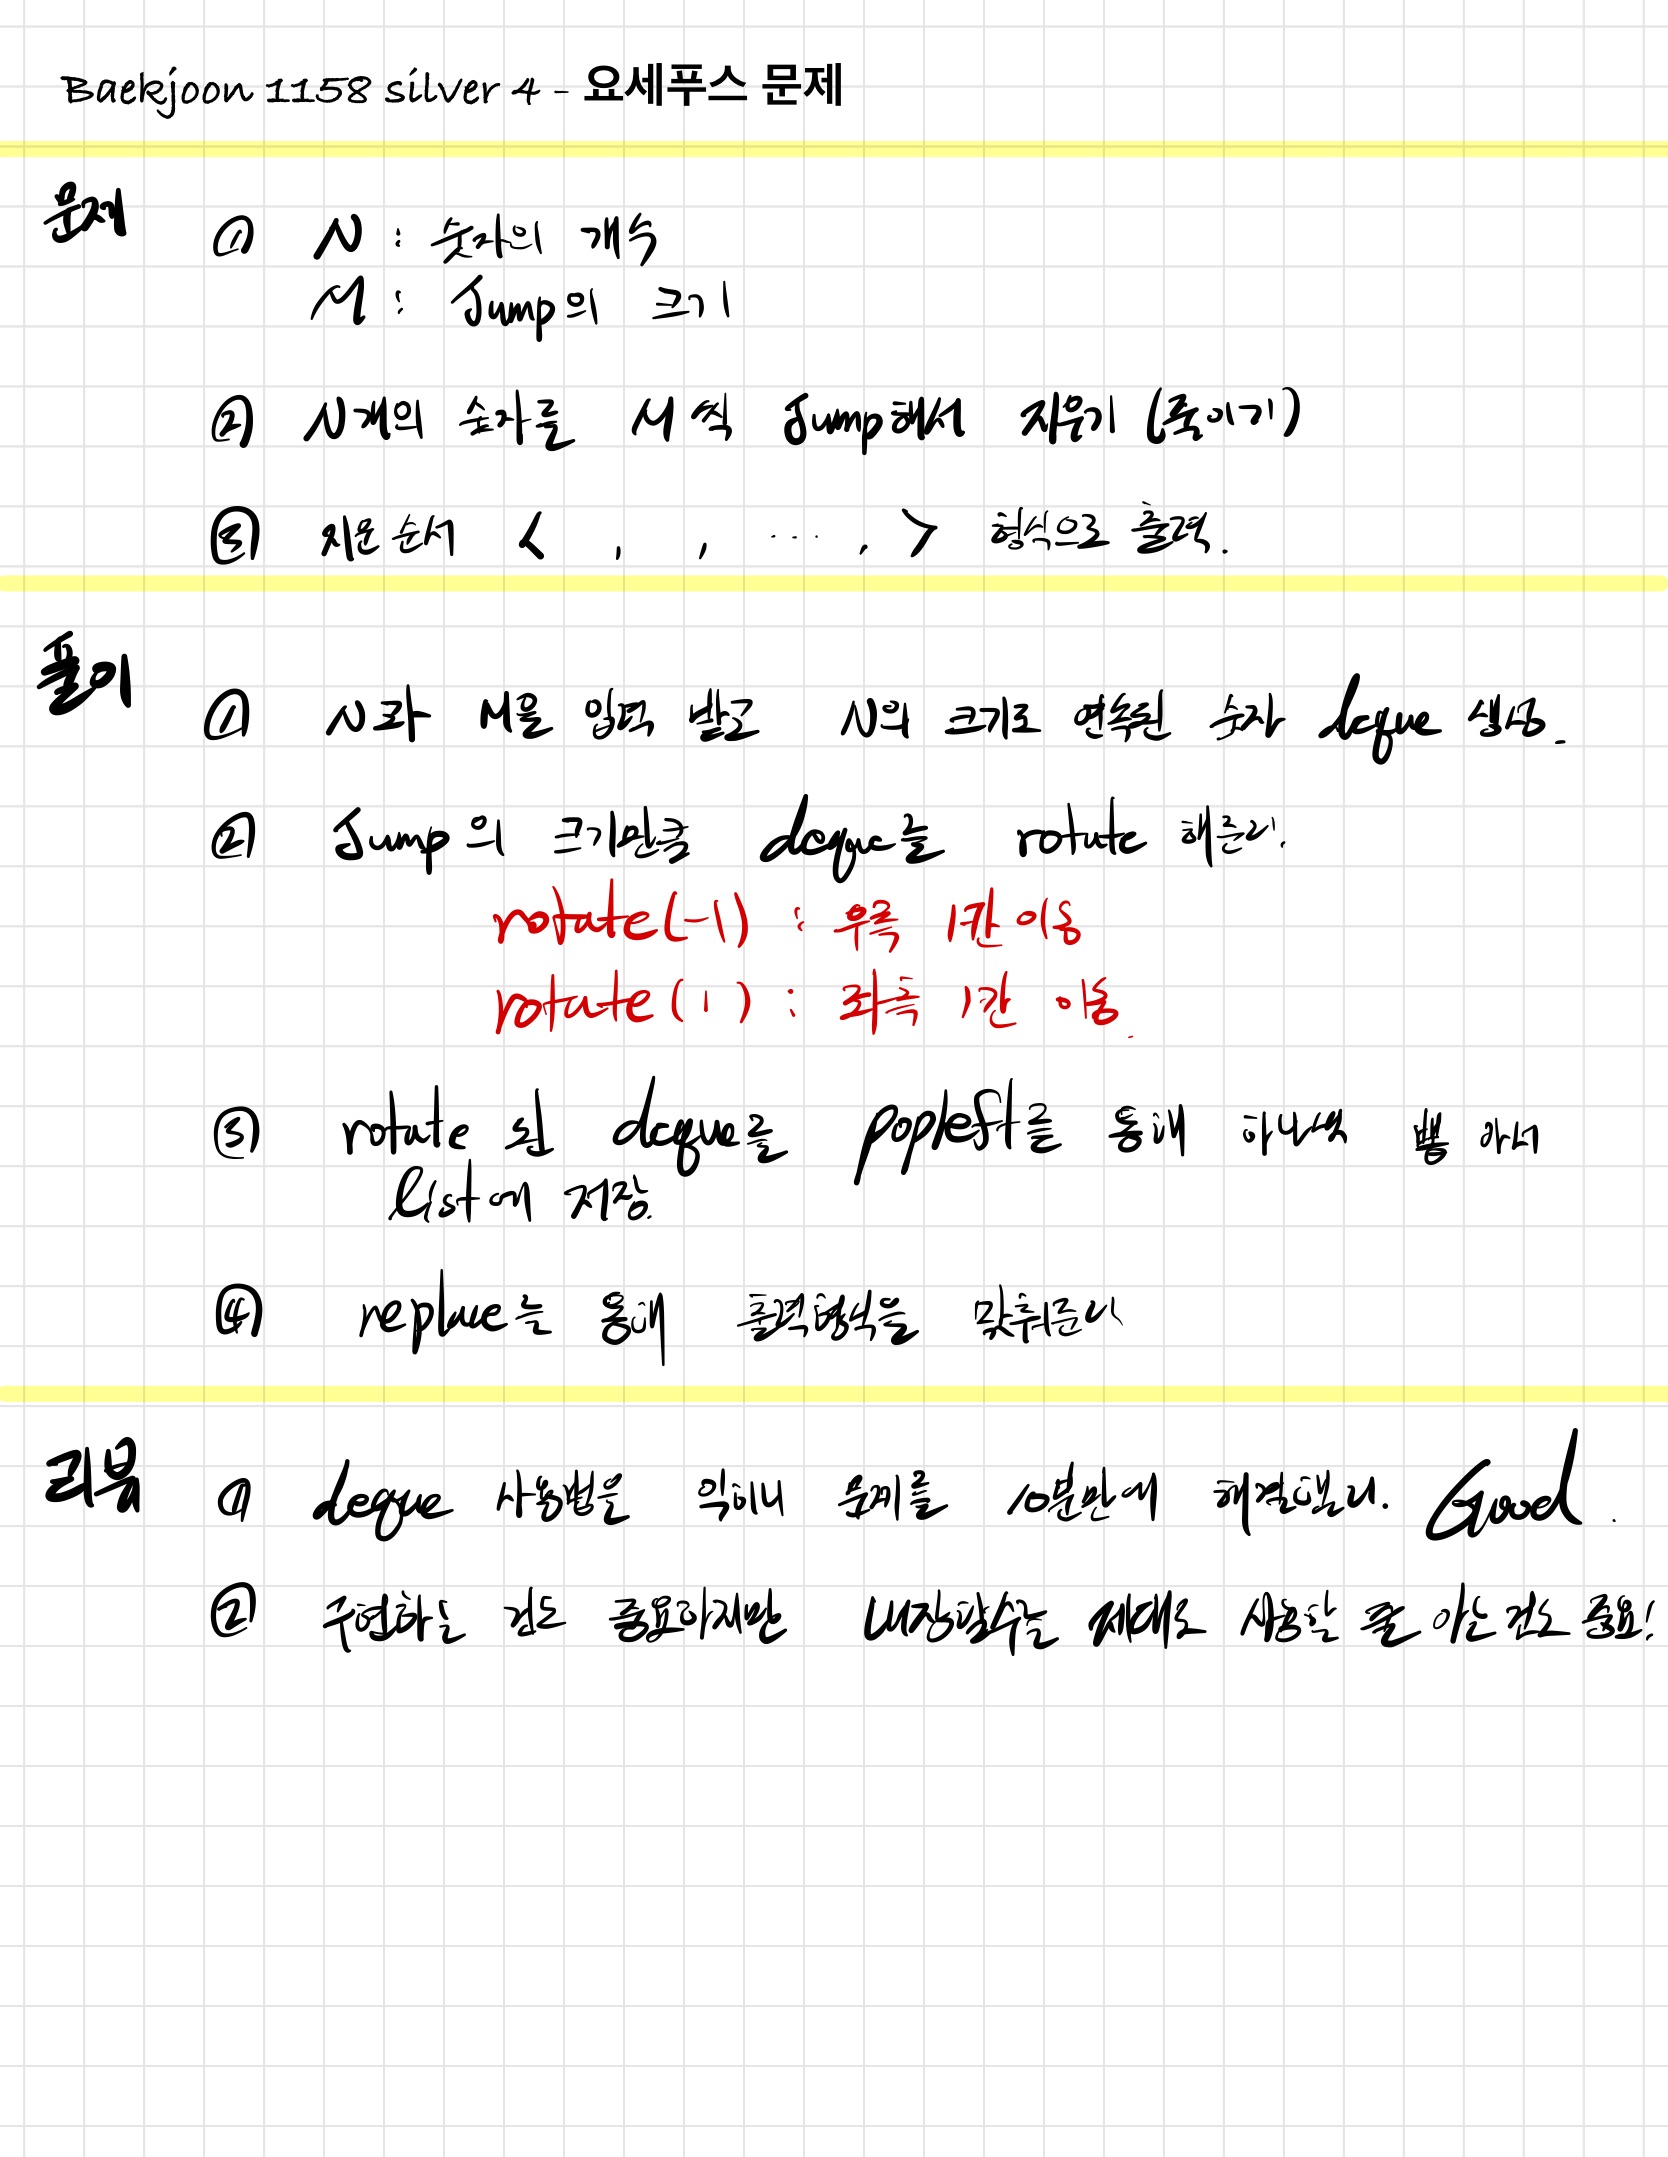 Baekjoon 1158 silver 4 - 요세푸스 문제
문제
① N : 숫자의 개수
M : Jump의 크기
② N개의 숫자를 M씩 Jump해서 지우기 (죽이기)
③ 지운순서 < , , ... , > 형식으로 출력.
풀이
① N과 M을 입력 받고 N의 크기로 연속된 숫자 deque 생성.
② Jump의 크기만큼 deque를 rotate 해준다.
rotate(-1) : 우측 1칸 이동
rotate(1) : 좌측 1칸 이동.
③ rotate 된 deque를 popleft를 통해 하나씩 뽑아서
list에 저장.
④ replace를 통해 출력형식을 맞춰준다
리뷰
① deque 사용법을 익히니 문제를 10분만에 해결했다. Good.
② 구현하는 것도 중요하지만 내장함수를 제대로 사용할 줄 아는것도 중요!